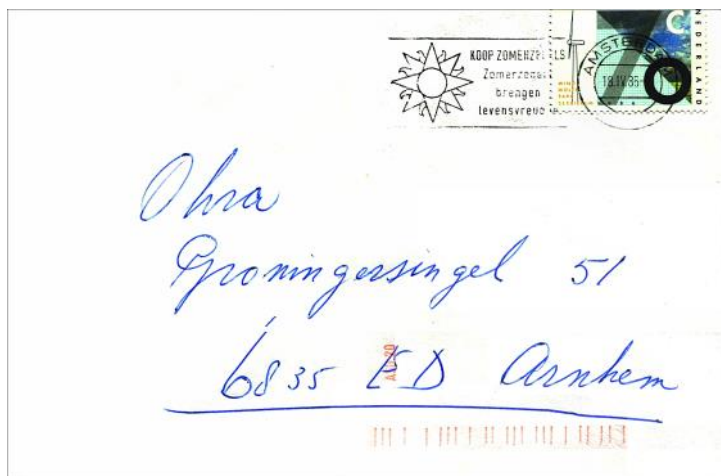 KOOP ZOMERZEGELS
Zomerzegels
brengen
levensvreugde
AMSTERDAM
18.IV.86
NEDERLAND
Ohra
Groningersingel 51
6835 ED Arnhem